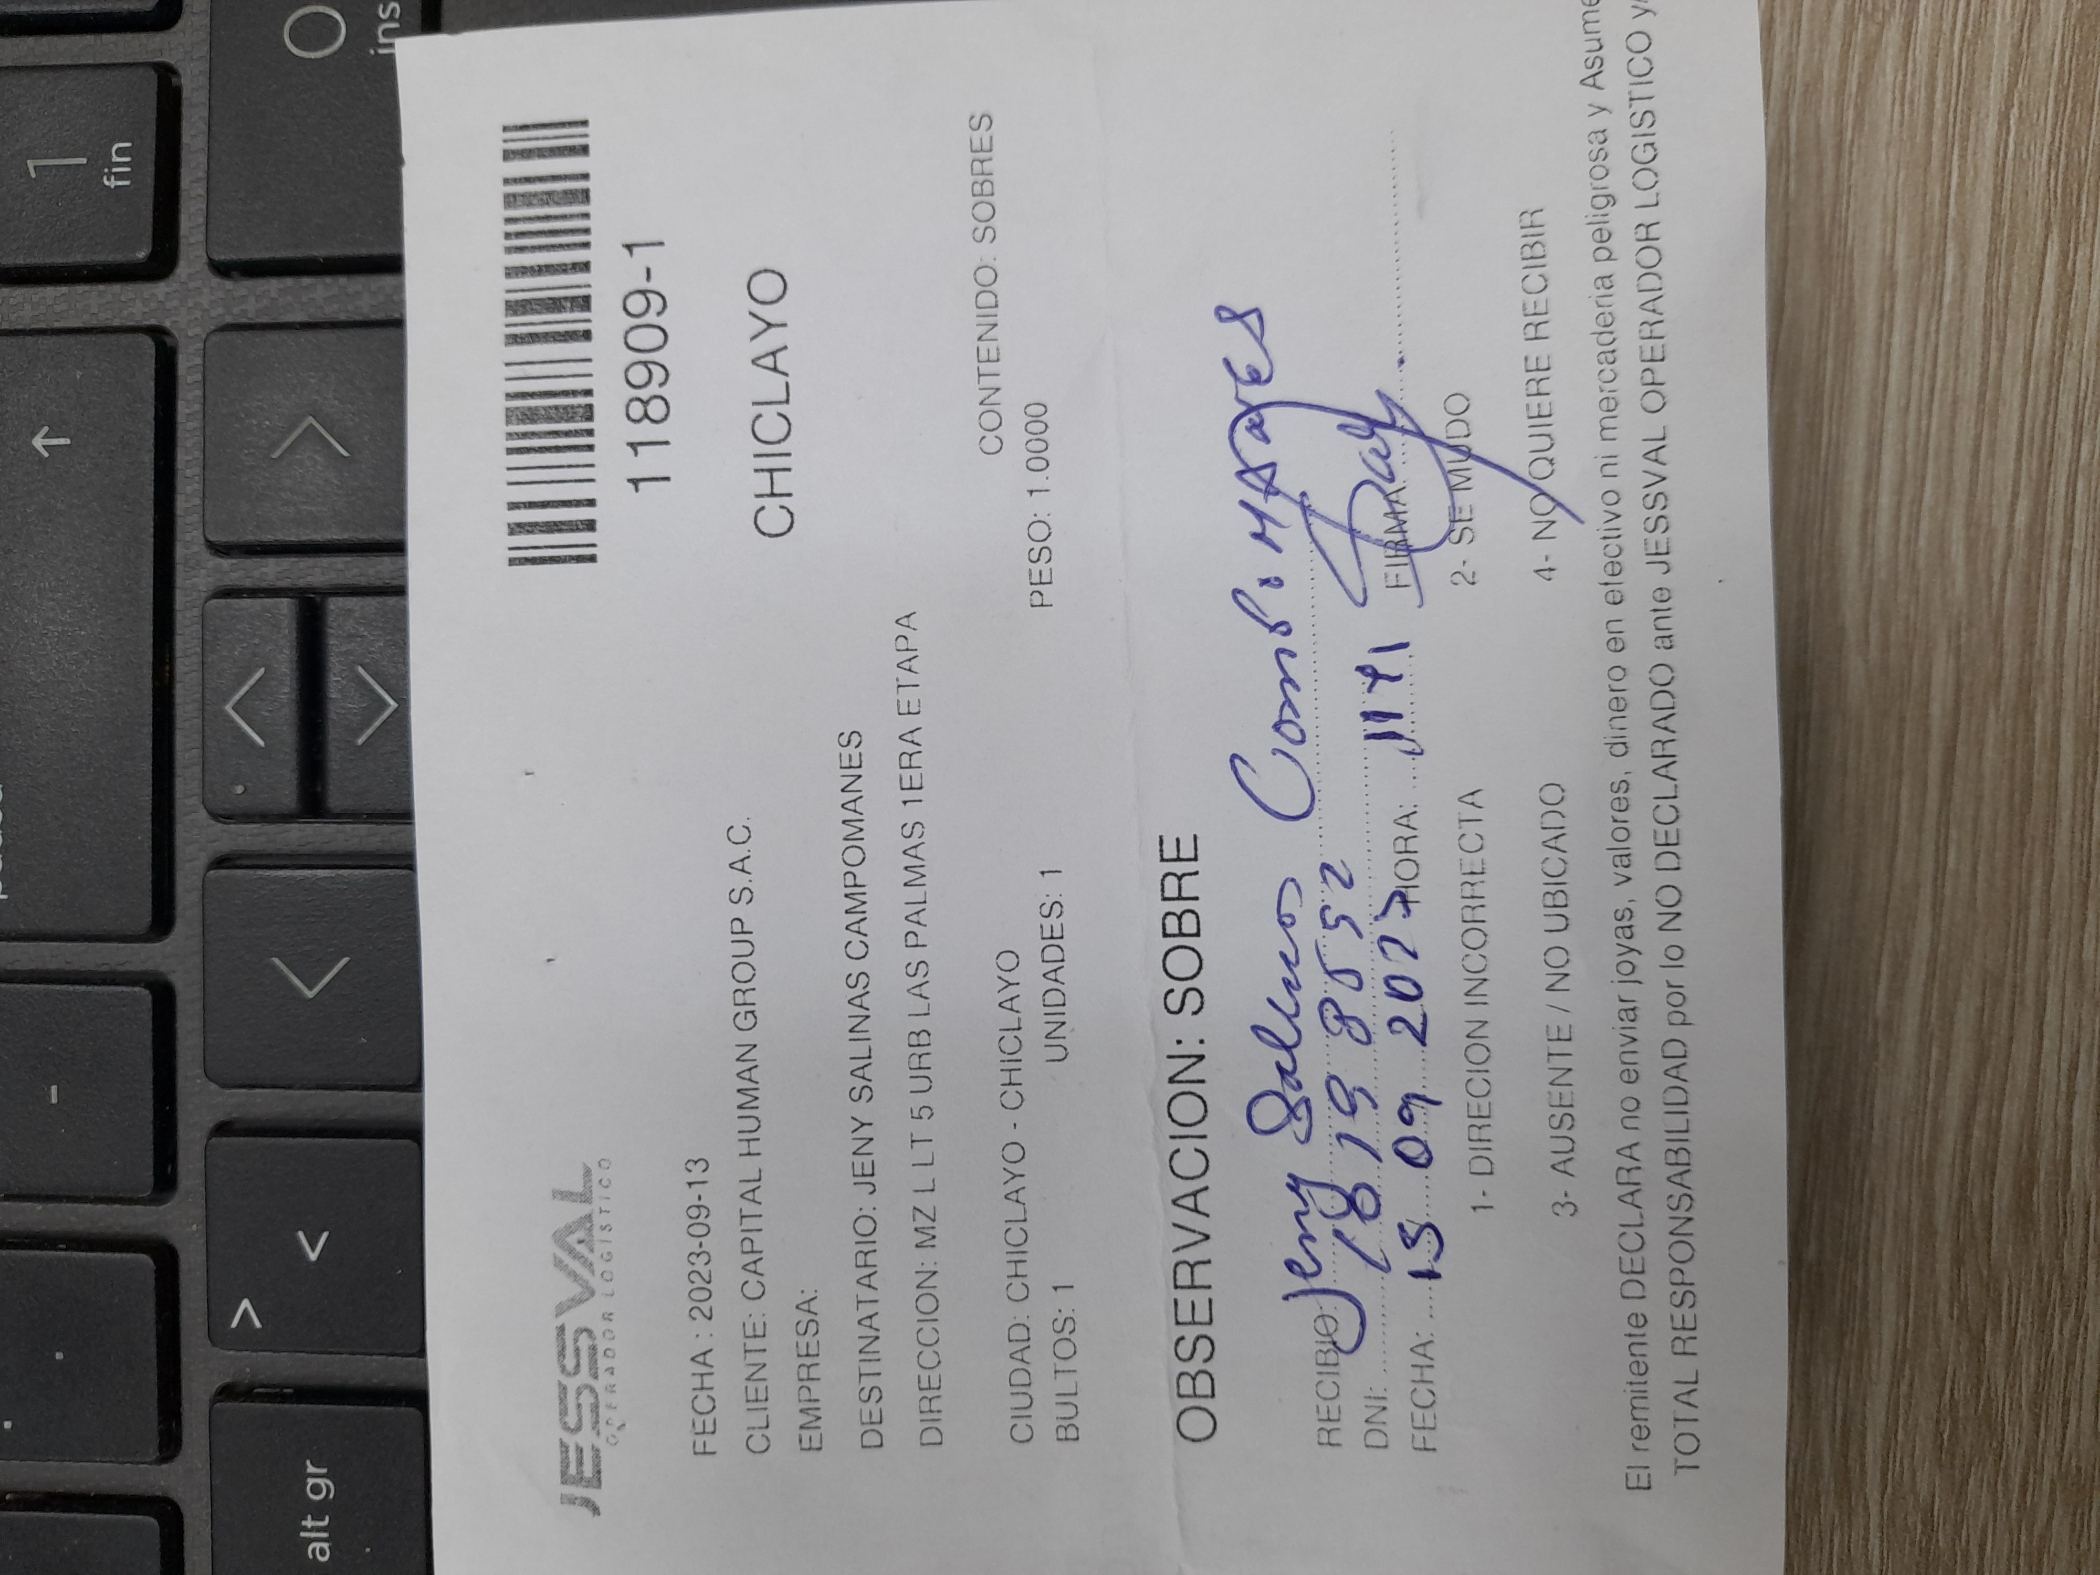 -
↑
1
fin
alt gr
>
<
0
ins
JESSVAL
OPERADOR LOGÍSTICO
118909-1
FECHA : 2023-09-13
CLIENTE: CAPITAL HUMAN GROUP S.A.C.
CHICLAYO
EMPRESA:
DESTINATARIO: JENY SALINAS CAMPOMANES
DIRECCION: MZ L LT 5 URB LAS PALMAS 1ERA ETAPA
CONTENIDO: SOBRES
CIUDAD: CHICLAYO - CHICLAYO
BULTOS: 1 UNIDADES: 1 PESO: 1.0000
OBSERVACION: SOBRE
RECIBIO: Jeny Salinas Campomanes
DNI:
FECHA: 15 09 2023 HORA: FIRMA:
1- DIRECION INCORRECTA 2- SE MUDO
3- AUSENTE / NO UBICADO 4- NO QUIERE RECIBIR
El remitente DECLARA no enviar joyas, valores, dinero en efectivo ni mercaderia peligrosa y Asume
TOTAL RESPONSABILIDAD por lo NO DECLARADO ante JESSVAL OPERADOR LOGISTICO y/